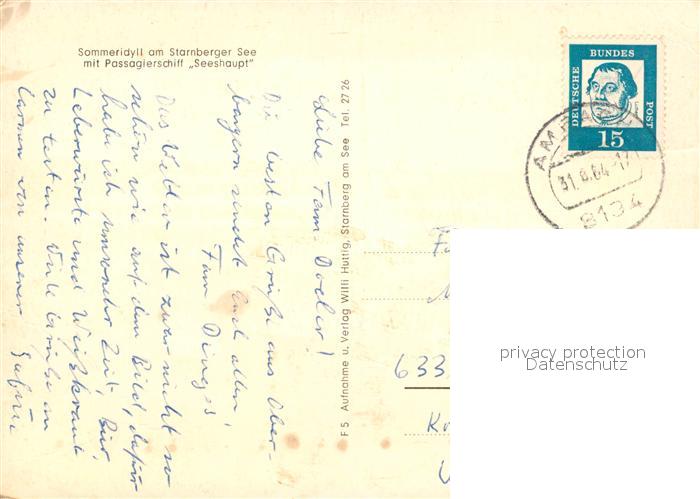 Sommeridyll am Starnberger See
mit Passagierschiff „Seeshaupt"
Liebe Fam. Doeler!
Die besten Grüße aus Ober-
bayern sendet Euch allen
Fam Dinges!
Das Wetter ist zwar nicht so
schön wie auf dem Bild, dafür
habe ich umsomehr Zeit, Bier,
Leberwürste und Weißkraut
zu testen. Viele Grüße an
von unserer
F 5 Aufnahme u. Verlag Willi Huttig, Starnberg am See Tel. 2726
DEUTSCHE
BUNDES
POST
15
31.8.64-17
8134
633
privacy protection
Datenschutz